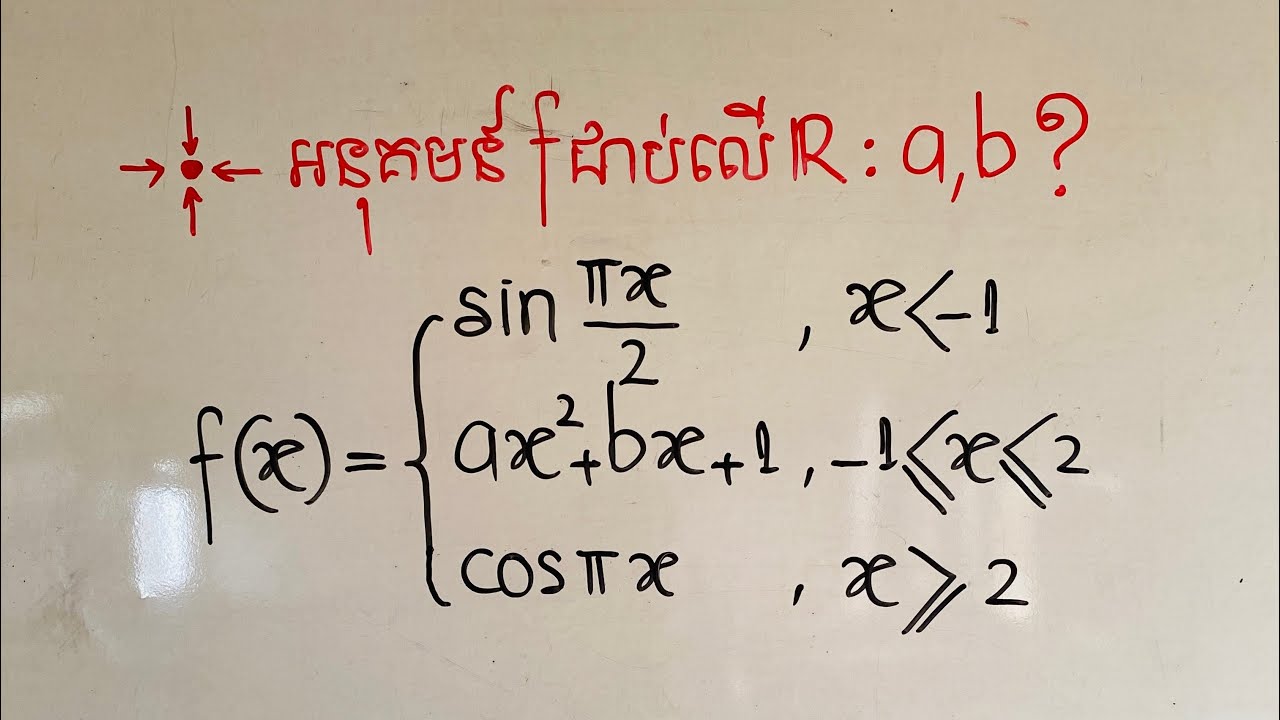 អនុគមន៍ f ជាប់លើ ℝ : a, b ?
f(x) = {
sin πx/2 , x < -1
ax² + bx + 1 , -1 ⩽ x ⩽ 2
cos πx , x ⩾ 2